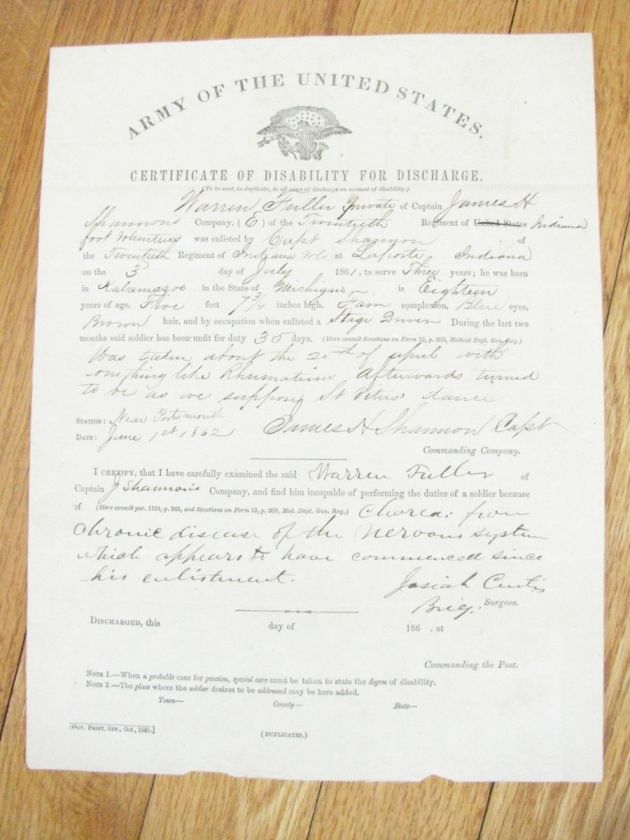 ARMY OF THE UNITED STATES.
CERTIFICATE OF DISABILITY FOR DISCHARGE.
(To be used, in duplicate, in all cases of discharge on account of disability.)
Warren Fuller private of Captain James H
Shannons Company, (E) of the Twentieth Regiment of United States Indiana
foot Volunteers was enlisted by Capt Shannon of
the Twentieth Regiment of Indiana Vols at Laporte Indiana
on the 3d day of July 1861, to serve Three years; he was born
in Kalamazoo in the State of Michigan is Eighteen
years of age, Five feet 7 3/4 inches high, Fair complexion, Blue eyes,
Brown hair, and by occupation when enlisted a Stage Driver During the last two
months said soldier has been unfit for duty 35 days. (Here consult directions on Form 13, p. 269, Medical Dept. Gen. Reg.)
Was taken about the 20th of april with
something like Rheumatism Afterwards turned
to be as we suppose St Vitus dance
STATION: Near Portsmouth
DATE: June 1st 1862 James H Shannon Capt
Commanding Company.
I CERTIFY, that I have carefully examined the said Warren Fuller of
Captain J Shannon's Company, and find him incapable of performing the duties of a soldier because
of (Here consult par. 1134, p. 243, and directions on Form 13, p. 269, Med. Dept. Gen. Reg.) Chorea: from
chronic disease of the nervous system
which appears to have commenced since
his enlistment.
Josiah Curtis
Brig. Surgeon.
DISCHARGED, this day of 186 , at
Commanding the Post.
NOTE 1.—When a probable case for pension, special care must be taken to state the degree of disability.
NOTE 2.—The place where the soldier desires to be addressed may be here added.
Town— County— State—
[GOV. PRINT. OFF., Oct., 1861.]
(DUPLICATES.)